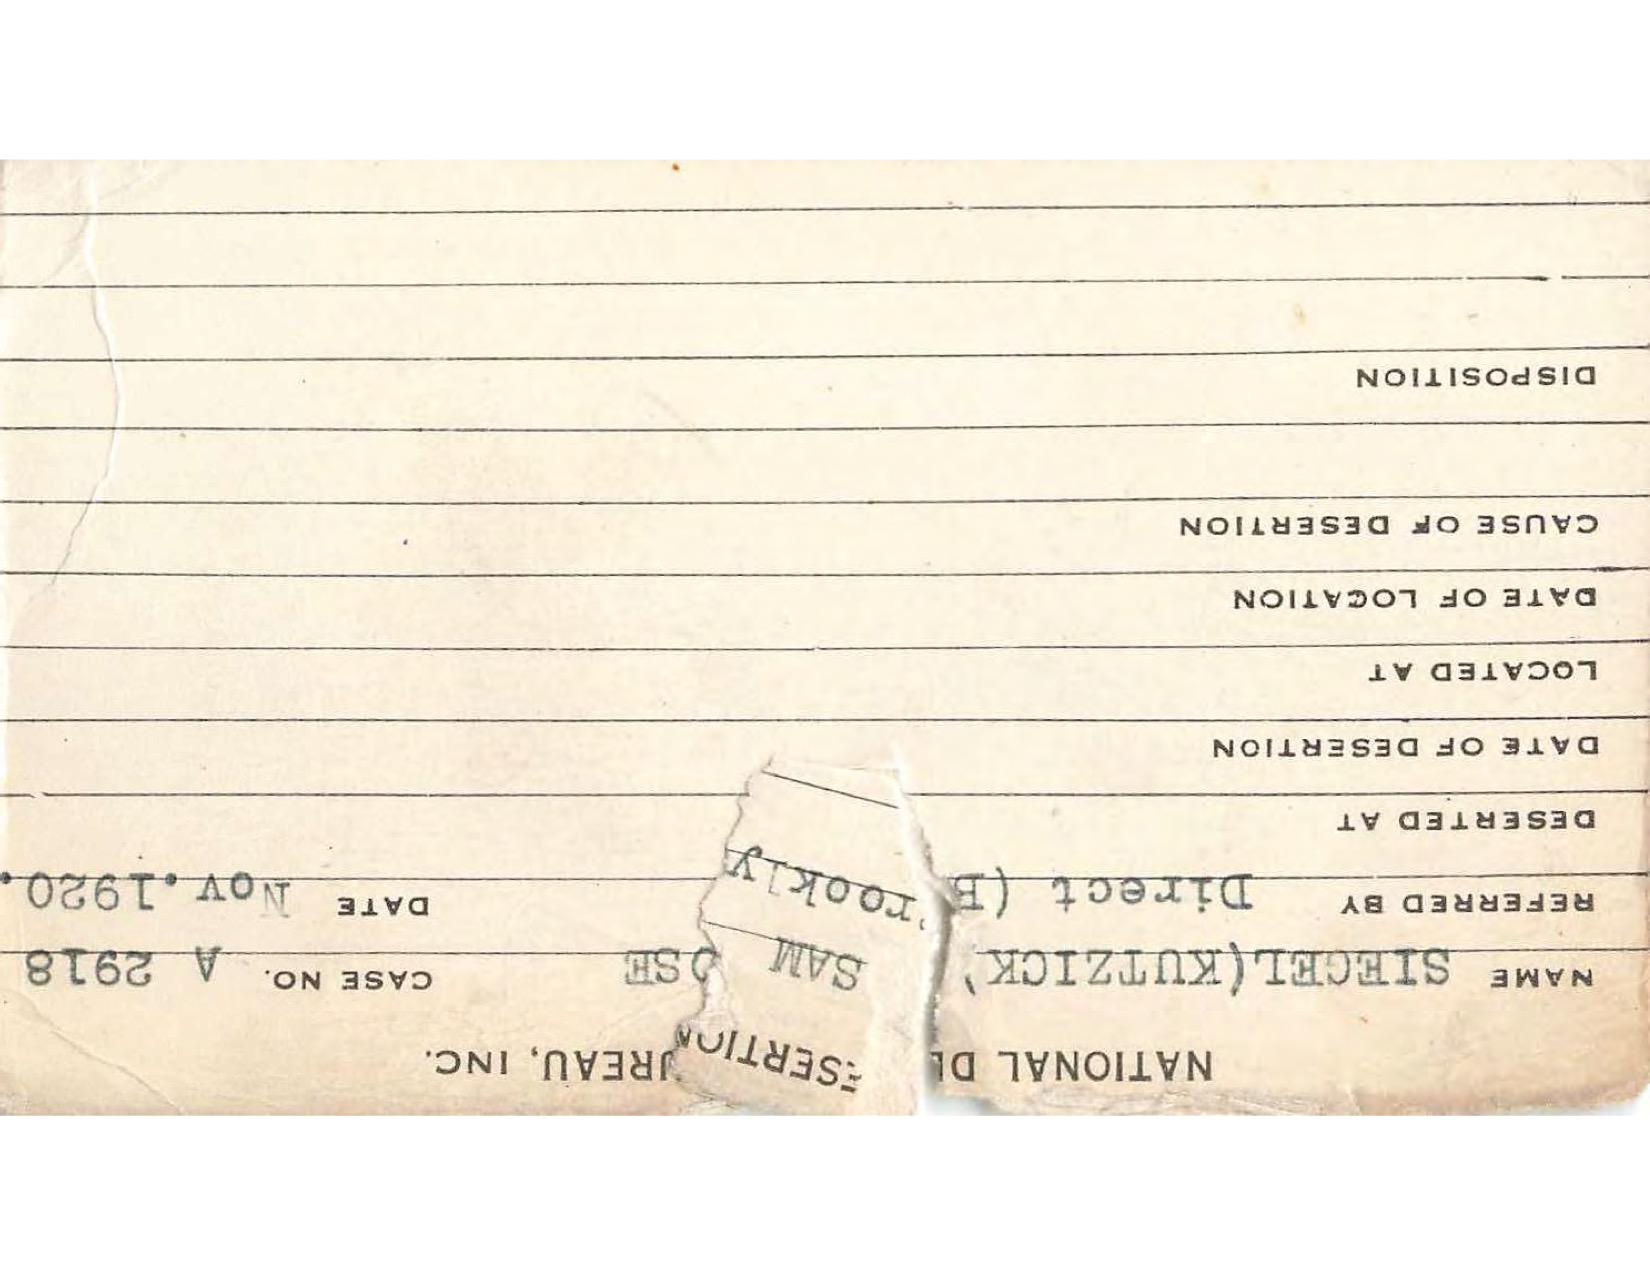 NATIONAL DESERTION UREAU, INC.
NAME SIEGEL(KUTZICK' SAM OSE CASE NO. A 2918
REFERRED BY Direct (Brookly DATE Nov.1920.
DESERTED AT
DATE OF DESERTION
LOCATED AT
DATE OF LOCATION
CAUSE OF DESERTION
DISPOSITION